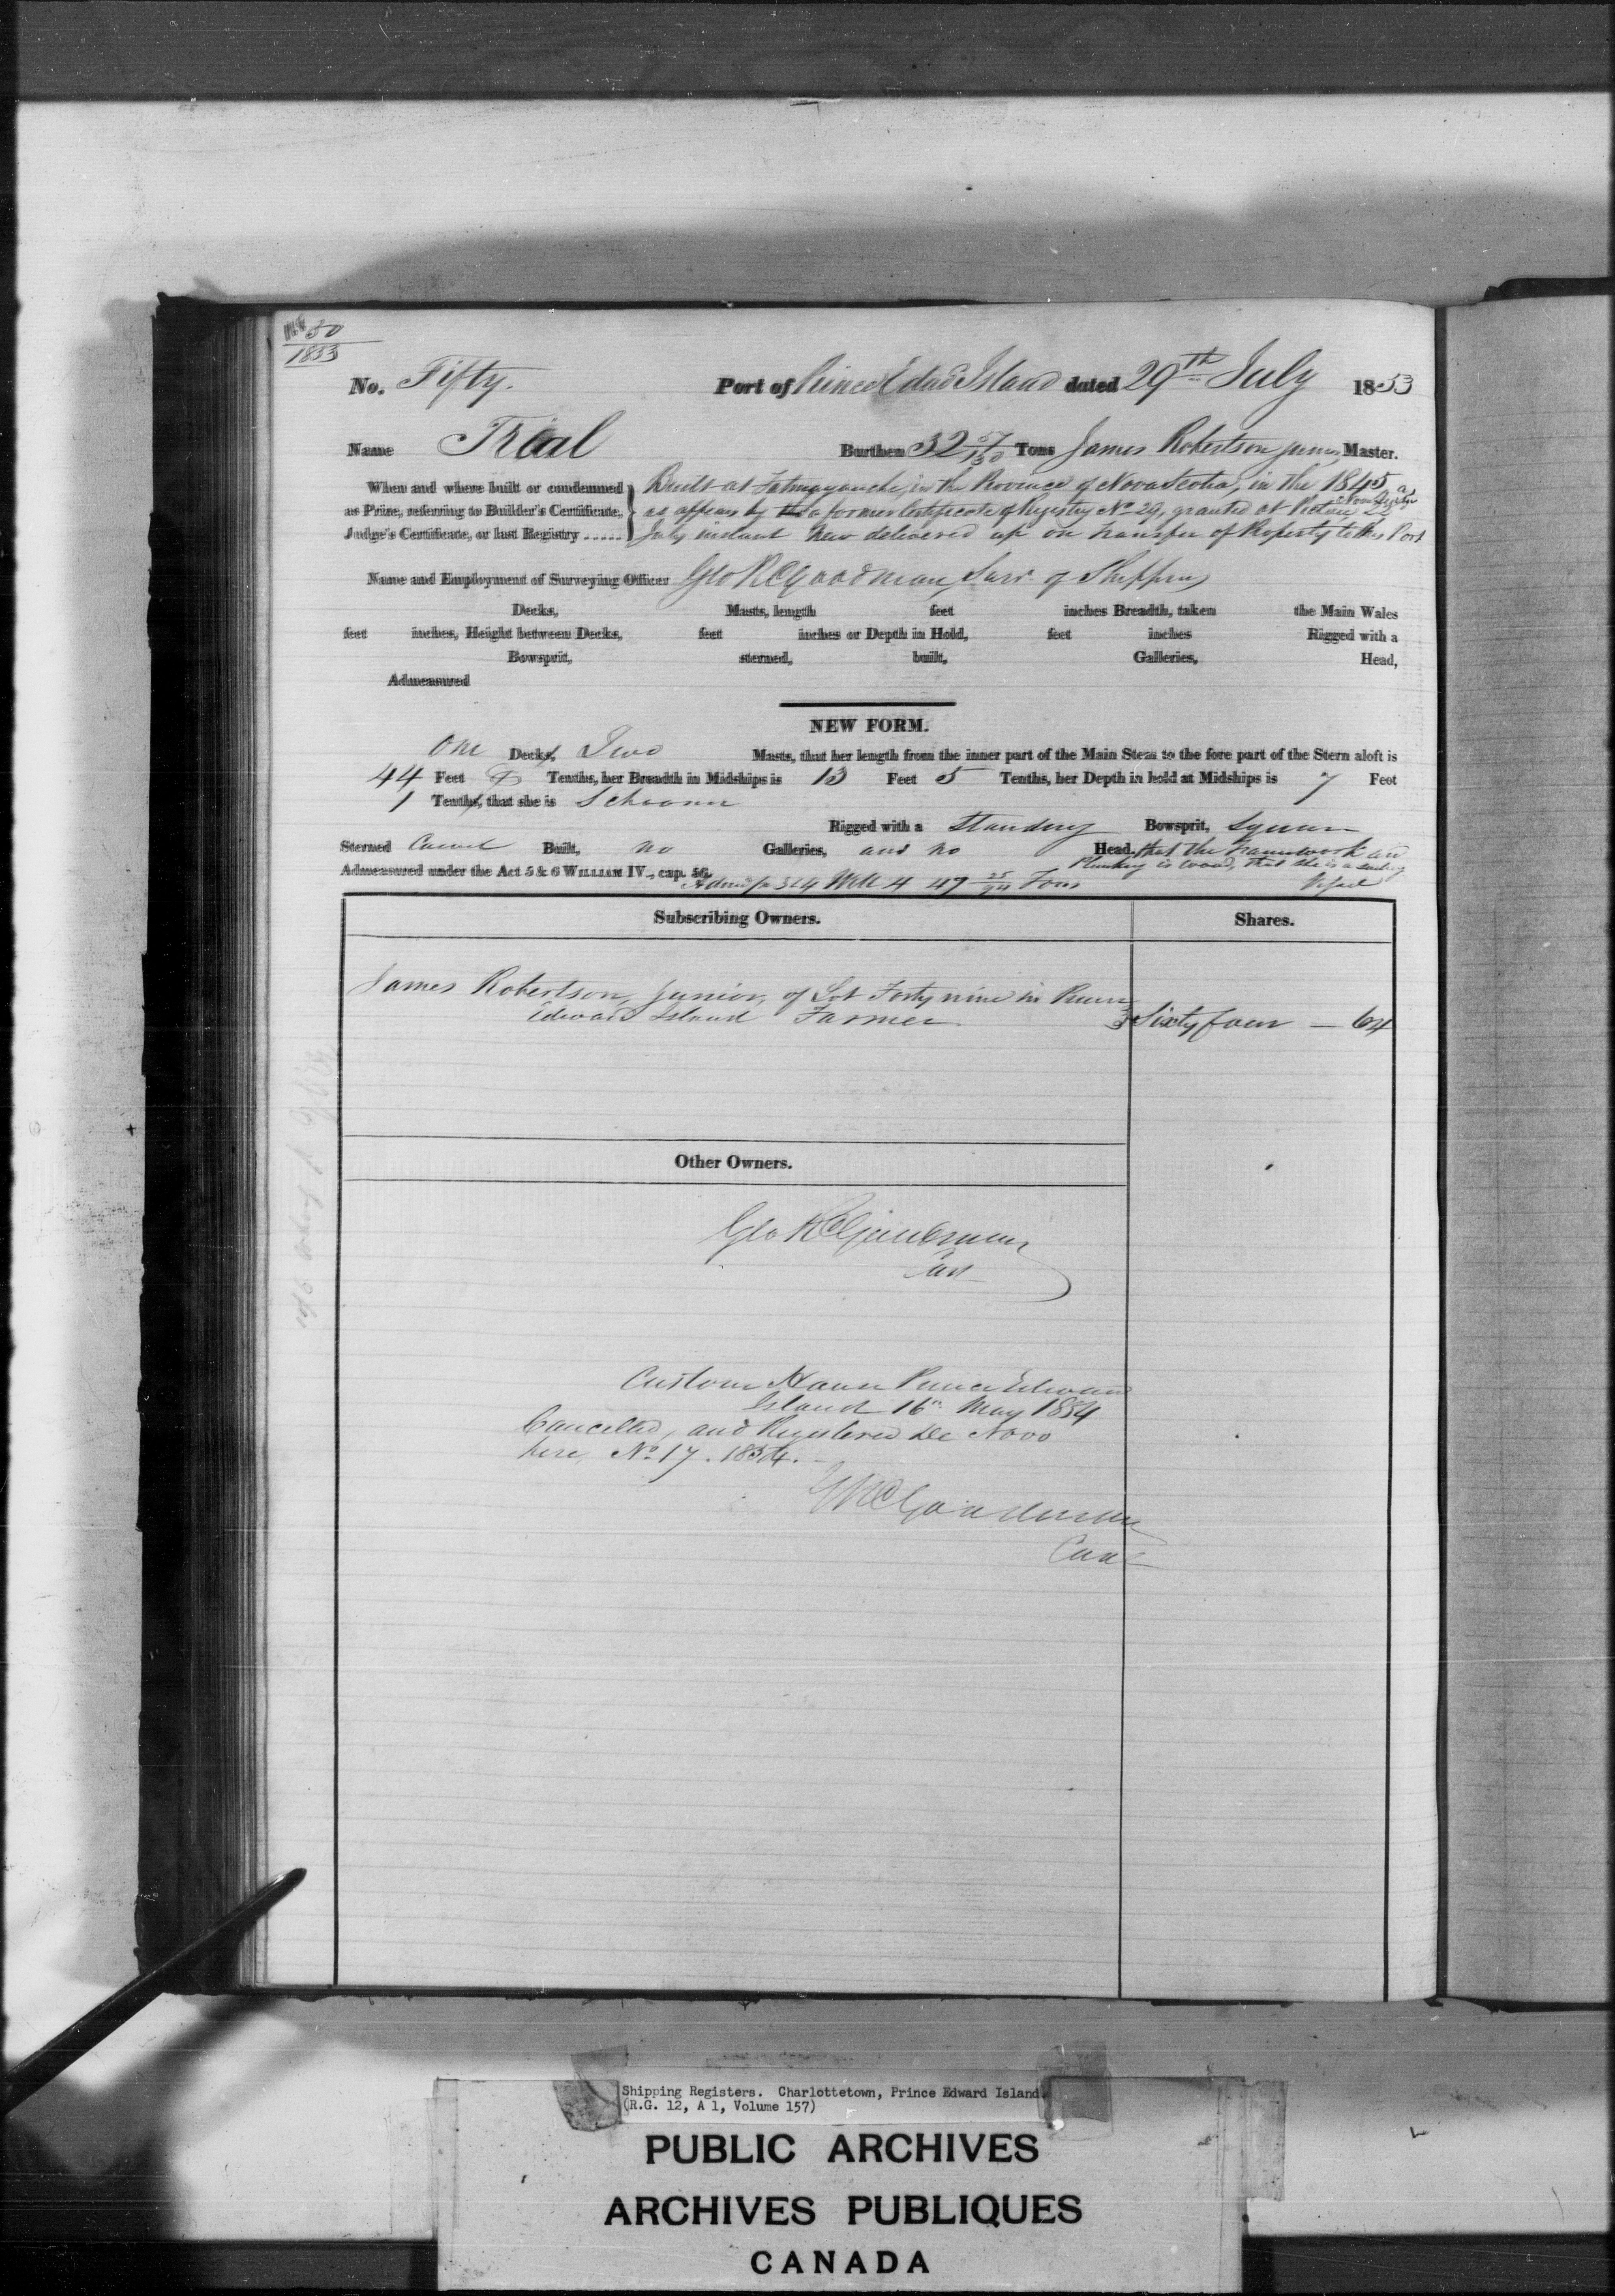 No. 50
1853
No. Fifty. Port of Prince Edwd Island dated 29th July 1853
Name Trial Burthen 32 57/130 Tons James Robertson junr Master.
When and where built or condemned Built at Tatmagouche, in the Province of Nova Scotia, in the 1845
as Prize, referring to Builder's Certificate, as appears by the a former Certificate of Registry No 29, granted at Pictou Nova Scotia 2
Judge's Certificate, or last Registry ..... July instant now delivered up on transfer of Property to this Port
Name and Employment of Surveying Officer Geo R Goodman, Surv. of Shipping
Decks, Masts, length feet inches Breadth, taken the Main Wales
feet inches, Height between Decks, feet inches or Depth in Hold, feet inches Rigged with a
Bowsprit, sterned, built, Galleries, Head,
Admeasured
NEW FORM.
One Decks, Two Masts, that her length from the inner part of the Main Stem to the fore part of the Stern aloft is
44 Feet Tenths, her Breadth in Midships is 13 Feet 5 Tenths, her Depth in hold at Midships is 7 Feet
1 Tenths, that she is Schooner
Rigged with a Standing Bowsprit, Square
Sterned Carvel Built, no Galleries, and no Head, that the framework and
Planking is wood, that she is a sailing
Admeasured under the Act 5 & 6 WILLIAM IV., cap. 56. Vessel
3 & 4 Will 4 47 25/94 Tons
Subscribing Owners. Shares.
James Robertson, junior, of Lot Forty nine in Prince
Edward Island Farmer Sixty four — 64
Other Owners.
Geo R Goodman
Custom House Prince Edward
Island 16th May 1854
Cancelled, and Registered De Novo
here, No 17. 1854.
G R Goodman
Shipping Registers. Charlottetown, Prince Edward Island
(R.G. 12, A 1, Volume 157)
PUBLIC ARCHIVES
ARCHIVES PUBLIQUES
CANADA